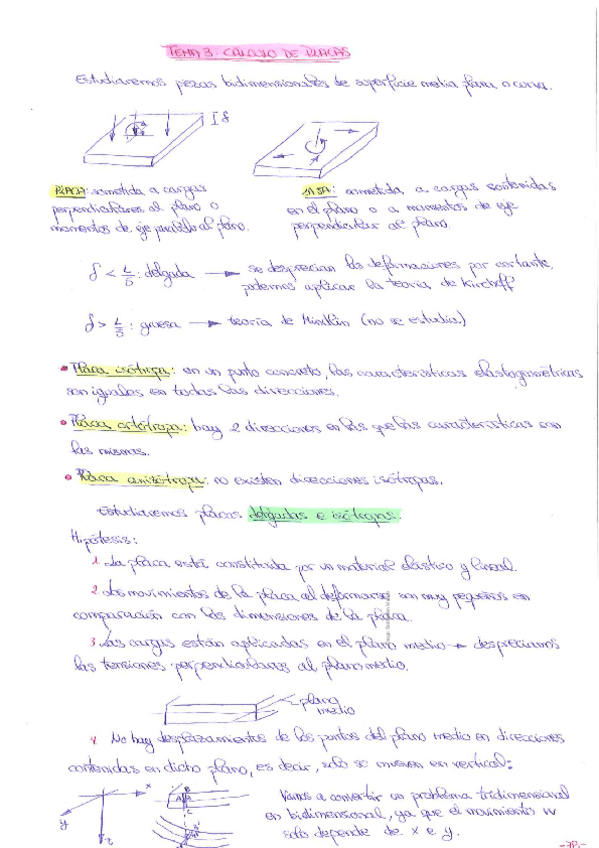 TEMA 3: CÁLCULO DE PLACAS
Estudiaremos piezas bidimensionales de superficie media plana o curva.
δ
PLACA: sometida a cargas
perpendiculares al plano o
momentos de eje paralelo al plano.
LAJA: sometida a cargas contenidas
en el plano o a momentos de eje
perpendicular al plano.
δ < L/5 : delgada → se desprecian las deformaciones por cortante,
podemos aplicar la teoría de Kirchoff
δ > L/5 : gruesa → teoría de Mindlin (no se estudia)
• Placa isótropa: en un punto concreto, las características elastogeométricas
son iguales en todas las direcciones.
• Placa ortótropa: hay 2 direcciones en las que las características son
las mismas.
• Placa anisótropa: no existen direcciones isótropas.
Estudiaremos placas delgadas e isótropas.
Hipótesis:
1. La placa está constituida por un material elástico y lineal.
2. Los movimientos de la placa al deformarse son muy pequeños en
comparación con las dimensiones de la placa.
3. Las cargas están aplicadas en el plano medio → despreciamos
las tensiones perpendiculares al plano medio.
plano
medio
4. No hay desplazamientos de los puntos del plano medio en direcciones
contenidas en dicho plano, es decir, solo se mueven en vertical:
x
y
z
A
B
C
Vamos a convertir un problema tridimensional
en bidimensional, ya que el movimiento w
solo depende de x e y.